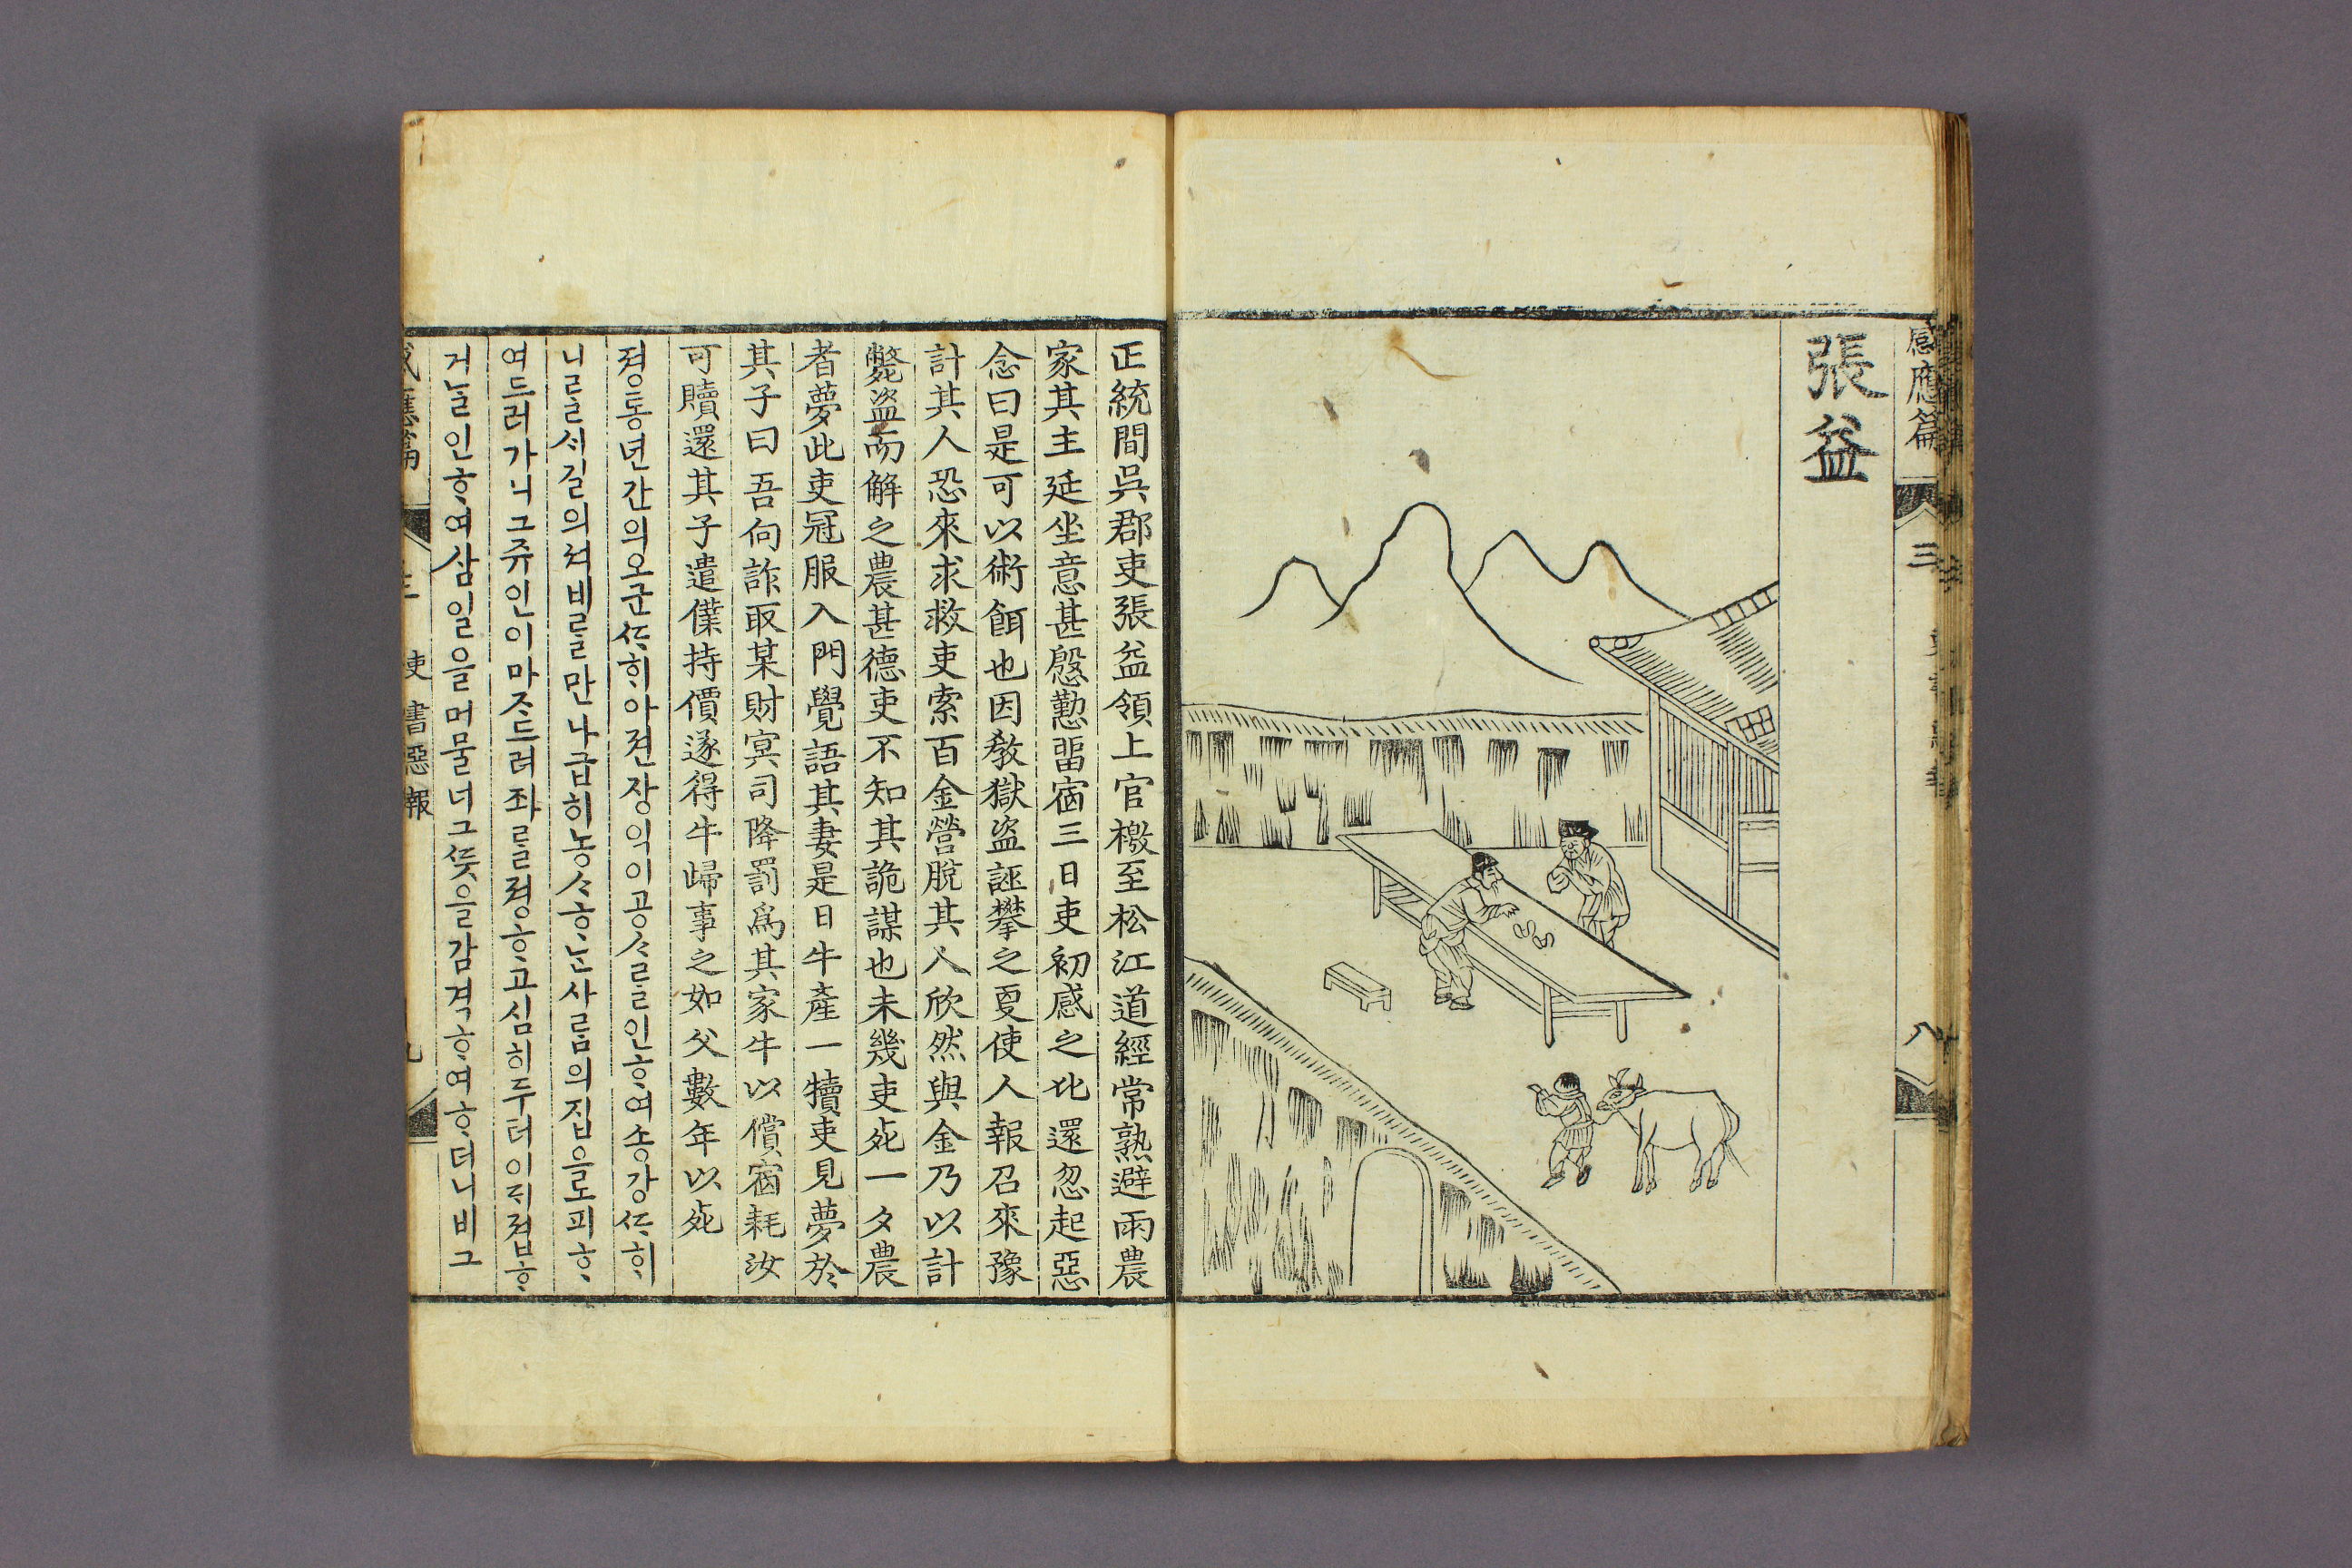 感應篇
三
八
張益
正統間吳郡吏張益領上官檄至松江道經常熟避雨農
家其主延坐意甚慇懃畱宿三日吏初感之比還忽起惡
念曰是可以術餌也因敎獄盜誣攀之亟使人報召來豫
計其人恐來求救吏索百金營脫其人欣然與金乃以計
斃盜而解之農甚德吏不知其詭謀也未幾吏死一夕農
者夢此吏冠服入門覺語其妻是日牛產一犢吏見夢於
其子曰吾向詐取某財冥司降罰爲其家牛以償宿耗汝
可贖還其子遣僕持價遂得牛歸事之如父數年以死
졍통년간의오군ᄯᅡᄒᆡ아젼쟝익이공ᄉᆞᄅᆞᆯ인ᄒᆞ여송강ᄯᅡᄒᆡ
니ᄅᆞᆯᄉᆡ길의셔비ᄅᆞᆯ만나급히농ᄉᆞᄒᆞᄂᆞᆫ사ᄅᆞᆷ의집을도피ᄒᆞ
여드러가니그쥬인이마ᄌᆞ드려좌ᄅᆞᆯ졍ᄒᆞ고심히두터이ᄃᆡ졉ᄒᆞ
거ᄂᆞᆯ인ᄒᆞ여삼일을머물너그ᄯᅳᆺ을감격ᄒᆞ여ᄒᆞ더니비그
感應篇
三
吏書惡報
九